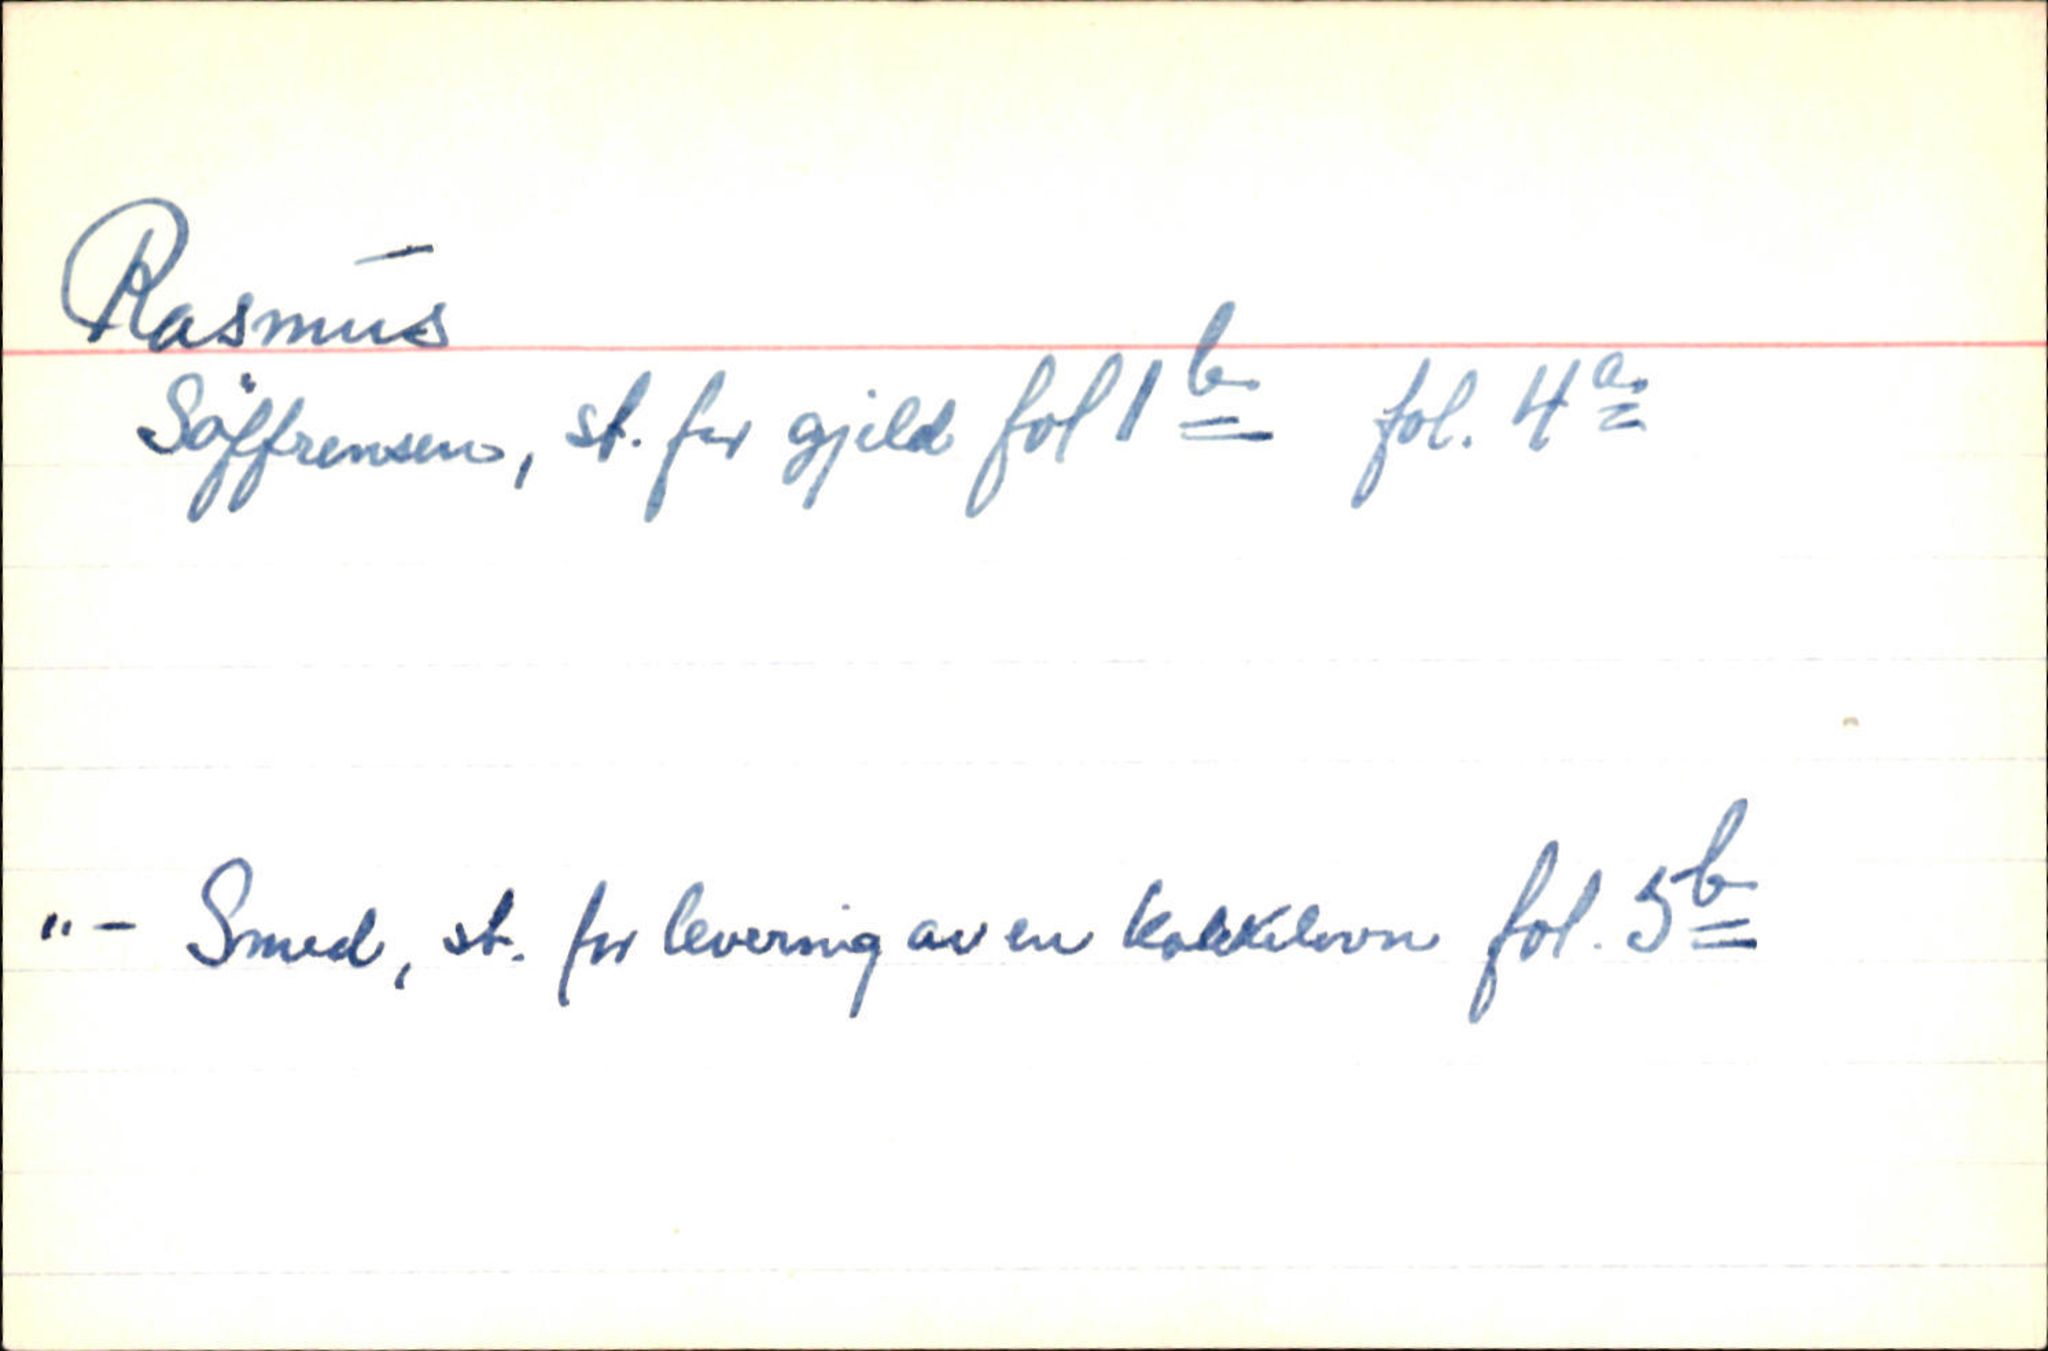 Rasmus
Söffrensen, st. for gjeld fol 1 b fol. 4 a
"- Smed, st. for levering av en kakkelovn fol. 5 b